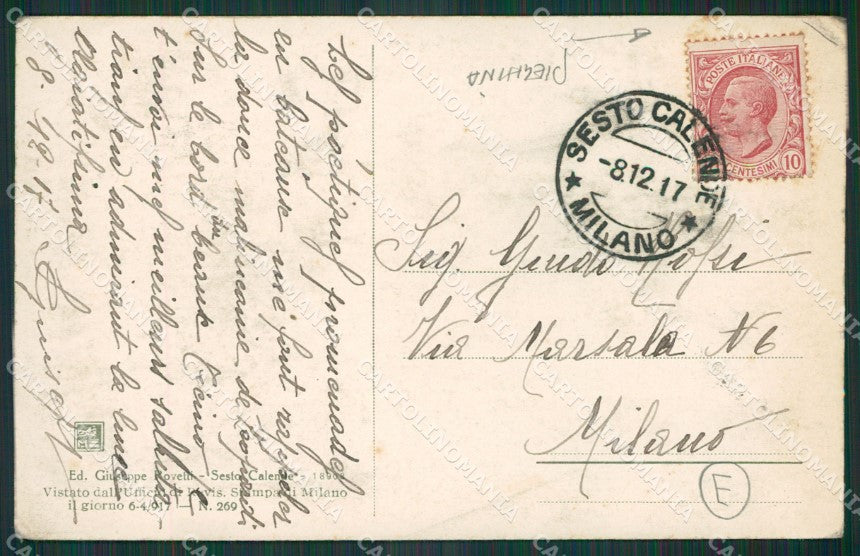 Les poétiques promenades
en bateau me font rappeler
la douce melancanie de Leopardi
Sur le bord du beau Ticino
t'envoi mes meilleurs saluta-
tions en admirant la luna
Claratissima
8. 12. 17
PIEGHINA
POSTE ITALIANE
CENTESIMI 10
SESTO CALENDE
-8.12.17
MILANO
Sig. Guido Rossi
Via Marsala N 6
Milano
E
Ed. Giuseppe Rovelli - Sesto Calende -
Vistato dall'Ufficio di Revis. Stampa di Milano
il giorno 6-4/917 — N. 269
CARTOLINOMANIA